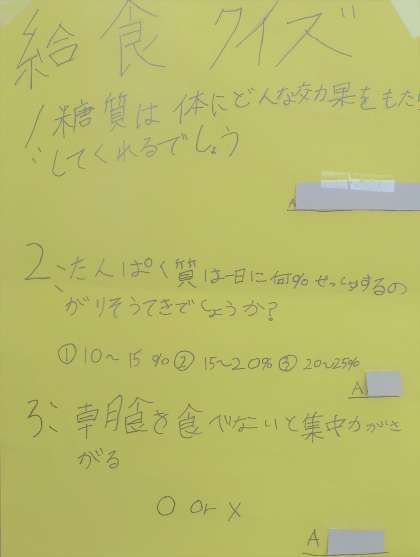 給食クイズ
1: 糖質は体にどんな効果をもたら
してくれるでしょう
A
2: たんぱく質は一日に何%せっしゅするの
がりそうてきでしょうか?
① 10〜15% ② 15〜20% ③ 20〜25%
A
3: 朝食を食べないと集中力がさ
がる
○ or ×
A